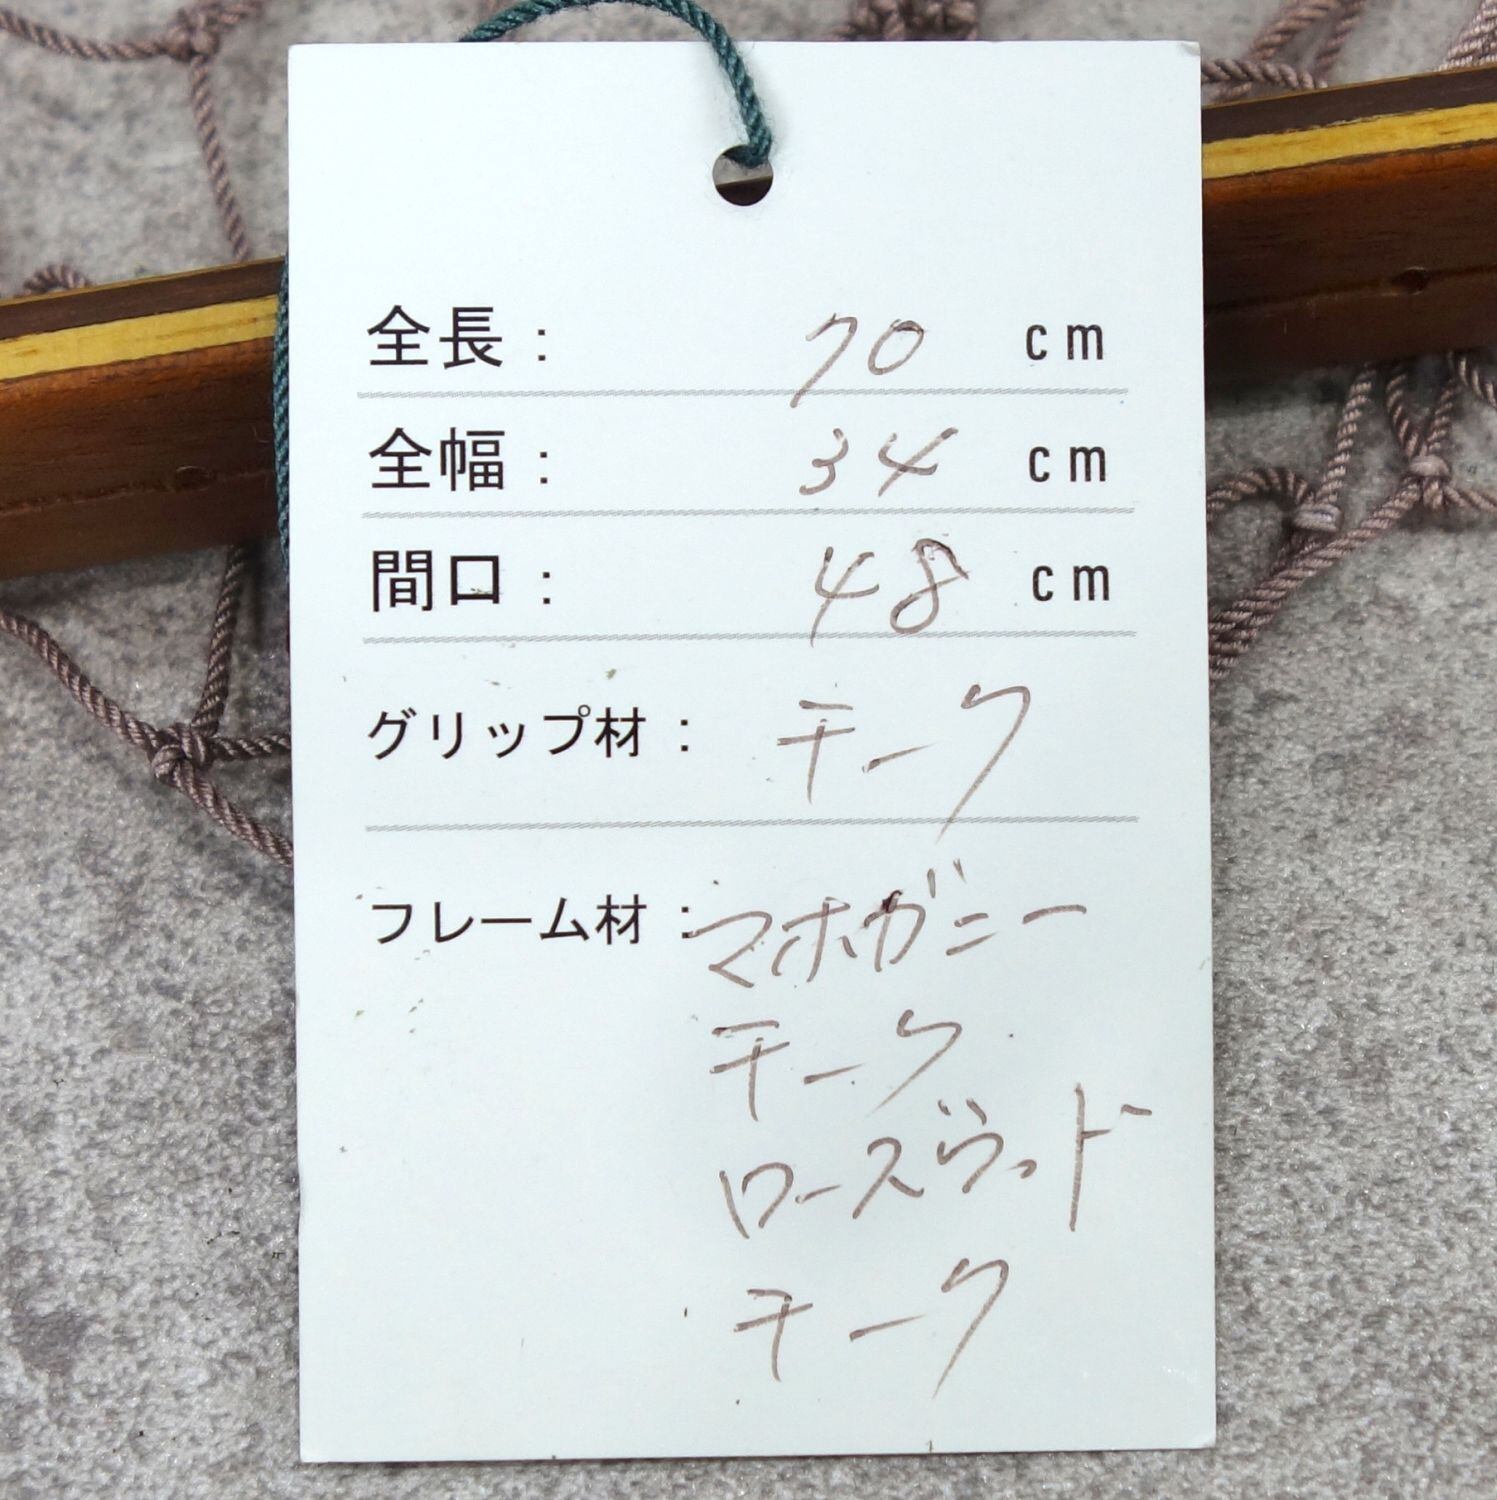 全長: 70 cm
全幅: 34 cm
間口: 48 cm
グリップ材: チーク
フレーム材: マホガニー
チーク
ローズウッド
チーク